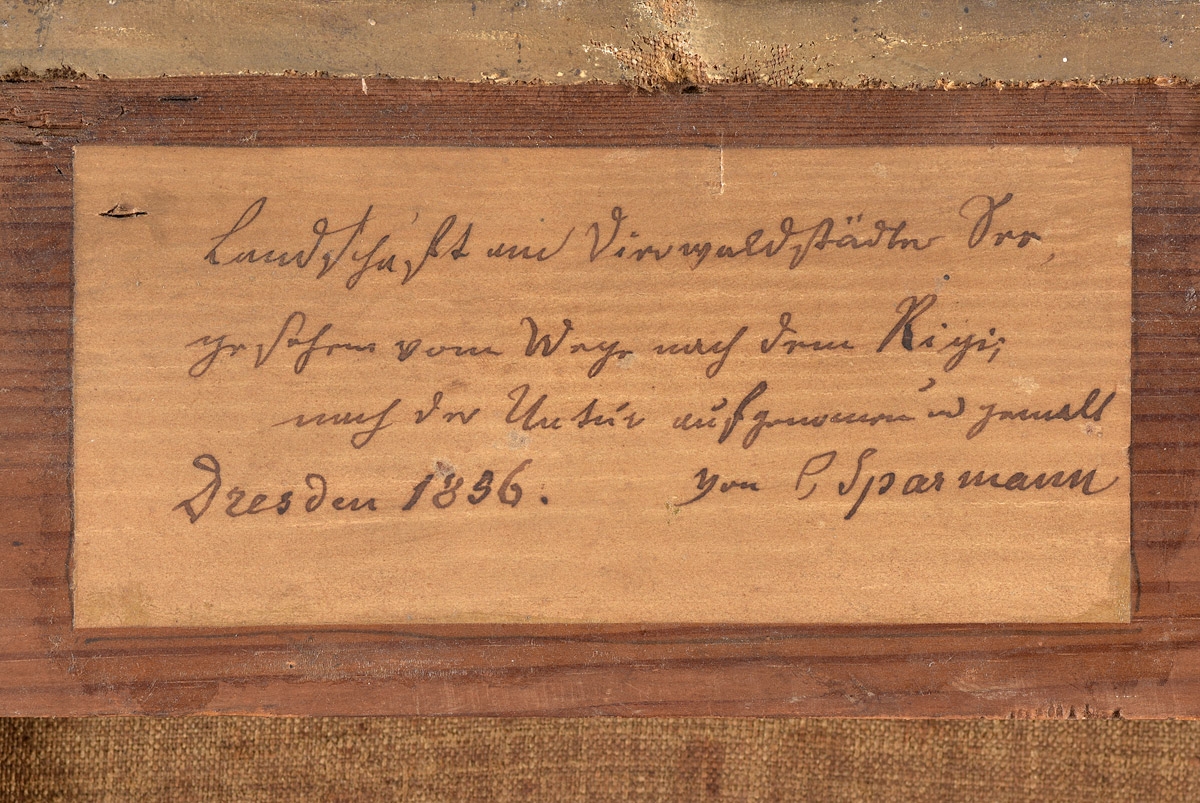 Landschaft am Vierwaldstädter See,
gesehen vom Wege nach dem Rigi;
nach der Natur aufgenomen und gemalt
Dresden 1836. von C Sparmann